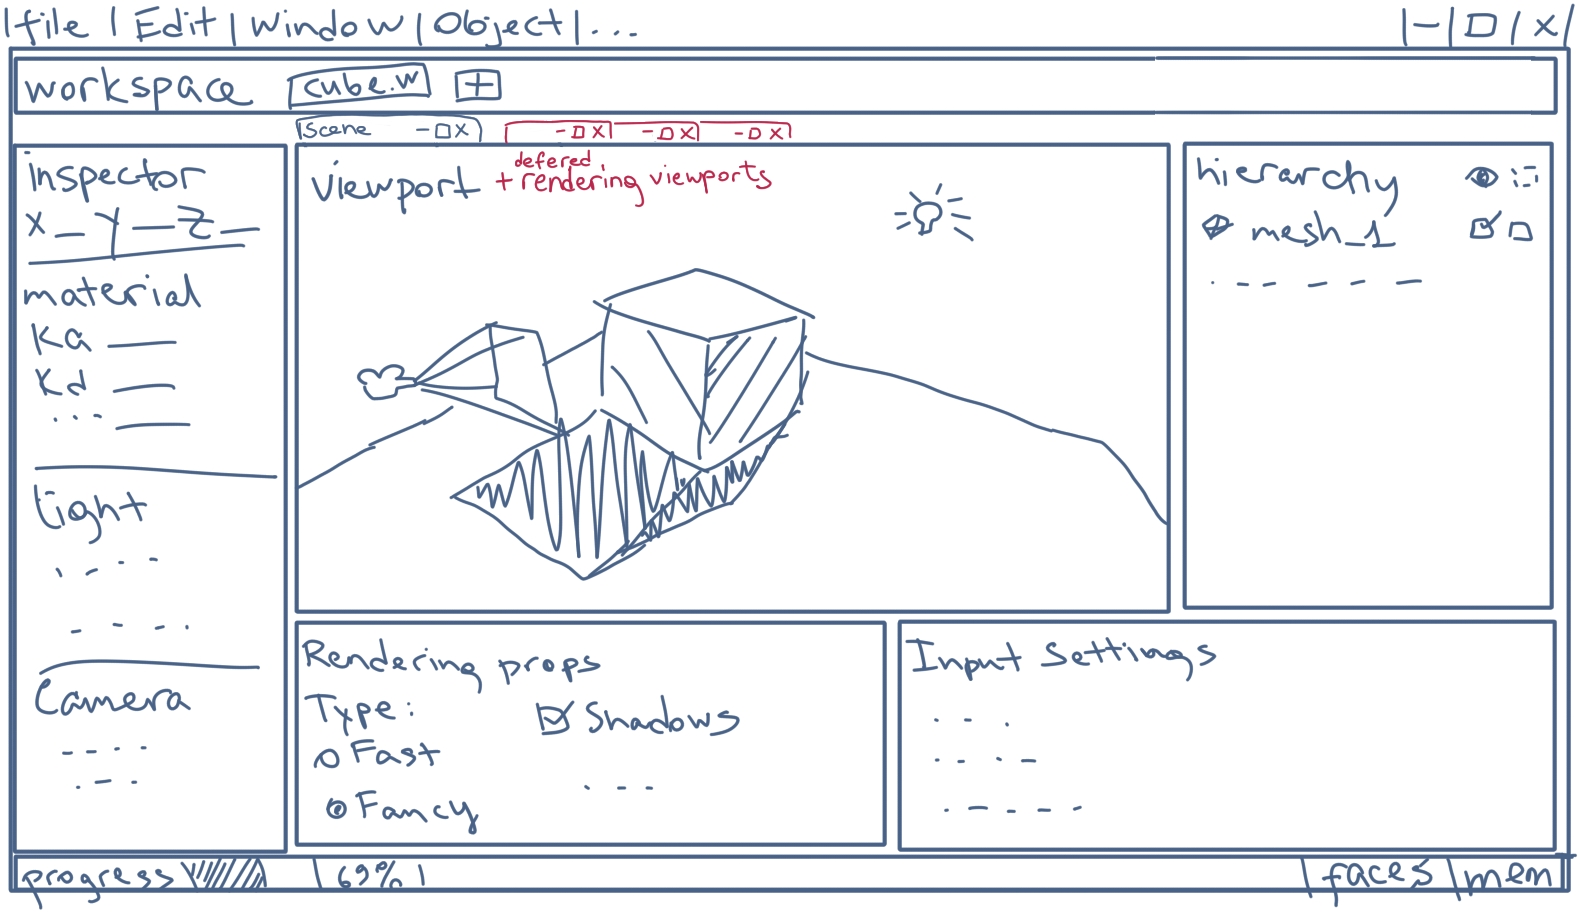 |file | Edit | Window | Object | ...
|-|□|X|
workspace cube.w +
scene -□X -□X -□X -□X
inspector
X_Y_Z_
material
Ka
Kd
...
light
Camera
viewport
defered
+ rendering viewports
hierarchy
mesh_1
Rendering props
Type:
Fast
Fancy
Shadows
Input Settings
progress | 69% | | faces | mem |